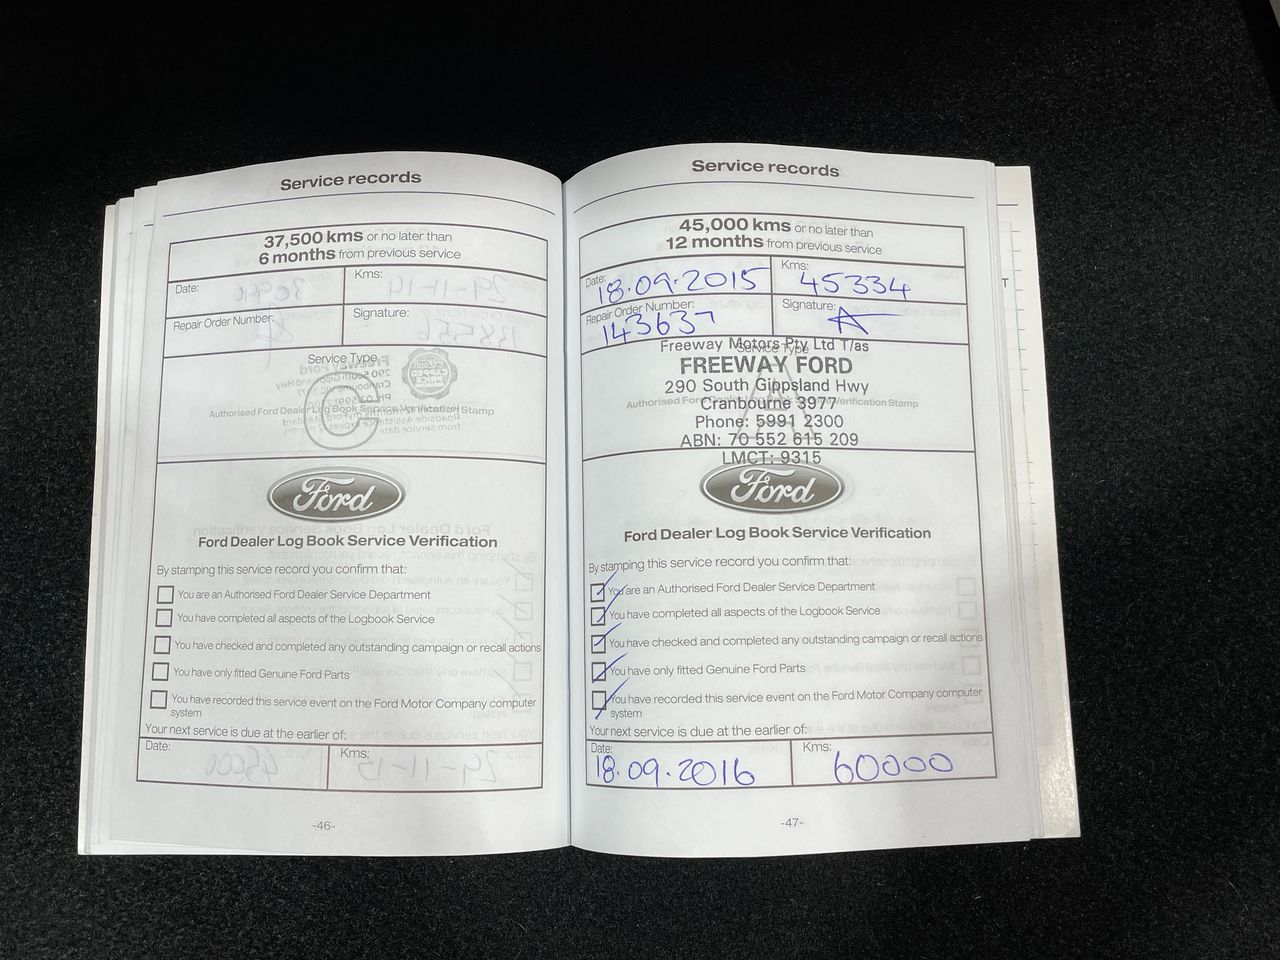 Service records
37,500 kms or no later than
6 months from previous service
Date:
Kms:
Repair Order Number:
Signature:
Service Type
G
Authorised Ford Dealer Log Book Service Verification Stamp
Ford
Ford Dealer Log Book Service Verification
By stamping this service record you confirm that:
You are an Authorised Ford Dealer Service Department
You have completed all aspects of the Logbook Service
You have checked and completed any outstanding campaign or recall actions
You have only fitted Genuine Ford Parts
You have recorded this service event on the Ford Motor Company computer
system
Your next service is due at the earlier of:
Date:
Kms:
-46-
Service records
45,000 kms or no later than
12 months from previous service
Date: 18.09.2015
Kms: 45334
Repair Order Number: 143637
Signature:
Service Type
A
Authorised Ford Dealer Log Book Service Verification Stamp
Freeway Motors Pty Ltd T/as
FREEWAY FORD
290 South Gippsland Hwy
Cranbourne 3977
Phone: 5991 2300
ABN: 70 552 615 209
LMCT: 9315
Ford
Ford Dealer Log Book Service Verification
By stamping this service record you confirm that:
You are an Authorised Ford Dealer Service Department
You have completed all aspects of the Logbook Service
You have checked and completed any outstanding campaign or recall actions
You have only fitted Genuine Ford Parts
You have recorded this service event on the Ford Motor Company computer
system
Your next service is due at the earlier of:
Date: 18.09.2016
Kms: 60000
-47-